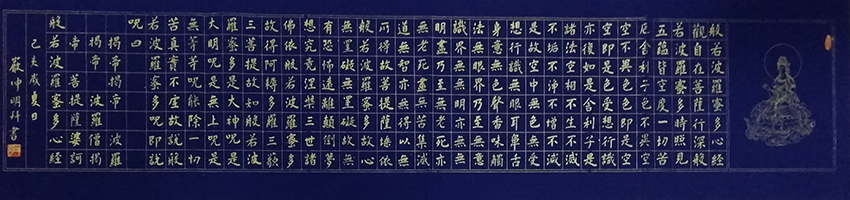 般若波羅蜜多心經
觀自在菩薩行深般
若波羅蜜多時照見
五蘊皆空度一切苦
厄舍利子色不異空
空不異色色即是空
空即是色受想行識
亦復如是舍利子是
諸法空相不生不滅
不垢不淨不增不減
是故空中無色無受
想行識無眼耳鼻舌
身意無色聲香味觸
法無眼界乃至無意
識界無無明亦無無
明盡乃至無老死亦
無老死盡無苦集滅
道無智亦無得以無
所得故菩提薩埵依
般若波羅蜜多故心
無罣礙無罣礙故無
有恐怖遠離顛倒夢
想究竟涅槃三世諸
佛依般若波羅蜜多
故得阿耨多羅三藐
三菩提故知般若波
羅蜜多是大神呪是
大明呪是無上呪是
無等等呪能除一切
苦真實不虛故說般
若波羅蜜多呪即說
呪曰
揭帝揭帝 波羅
揭帝 波羅僧揭
帝 菩提薩婆訶
般若波羅蜜多心經
己亥歲夏日
嚴沖明拜書